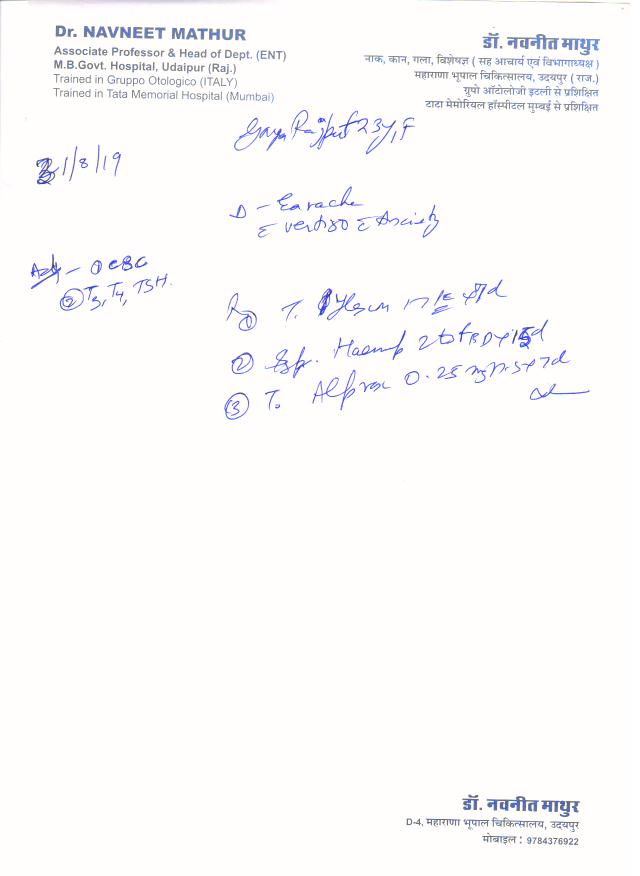 Dr. NAVNEET MATHUR
Associate Professor & Head of Dept. (ENT)
M.B.Govt. Hospital, Udaipur (Raj.)
Trained in Gruppo Otologico (ITALY)
Trained in Tata Memorial Hospital (Mumbai)
डॉ. नवनीत माथुर
नाक, कान, गला, विशेषज्ञ ( सह आचार्य एवं विभागाध्यक्ष )
महाराणा भूपाल चिकित्सालय, उदयपुर ( राज.)
ग्रुपो ऑटोलोजी इटली से प्रशिक्षित
टाटा मेमोरियल हॉस्पीटल मुम्बई से प्रशिक्षित
Rajput 23y, F
31/8/19
D - Earache
vertigo Anxiety
Adv - ① CBC
② T3, T4, TSH.
Rx ① T.
② Syp.
③ T. Alprax 0.25 mg
डॉ. नवनीत माथुर
D-4, महाराणा भूपाल चिकित्सालय, उदयपुर
मोबाइल : 9784376922